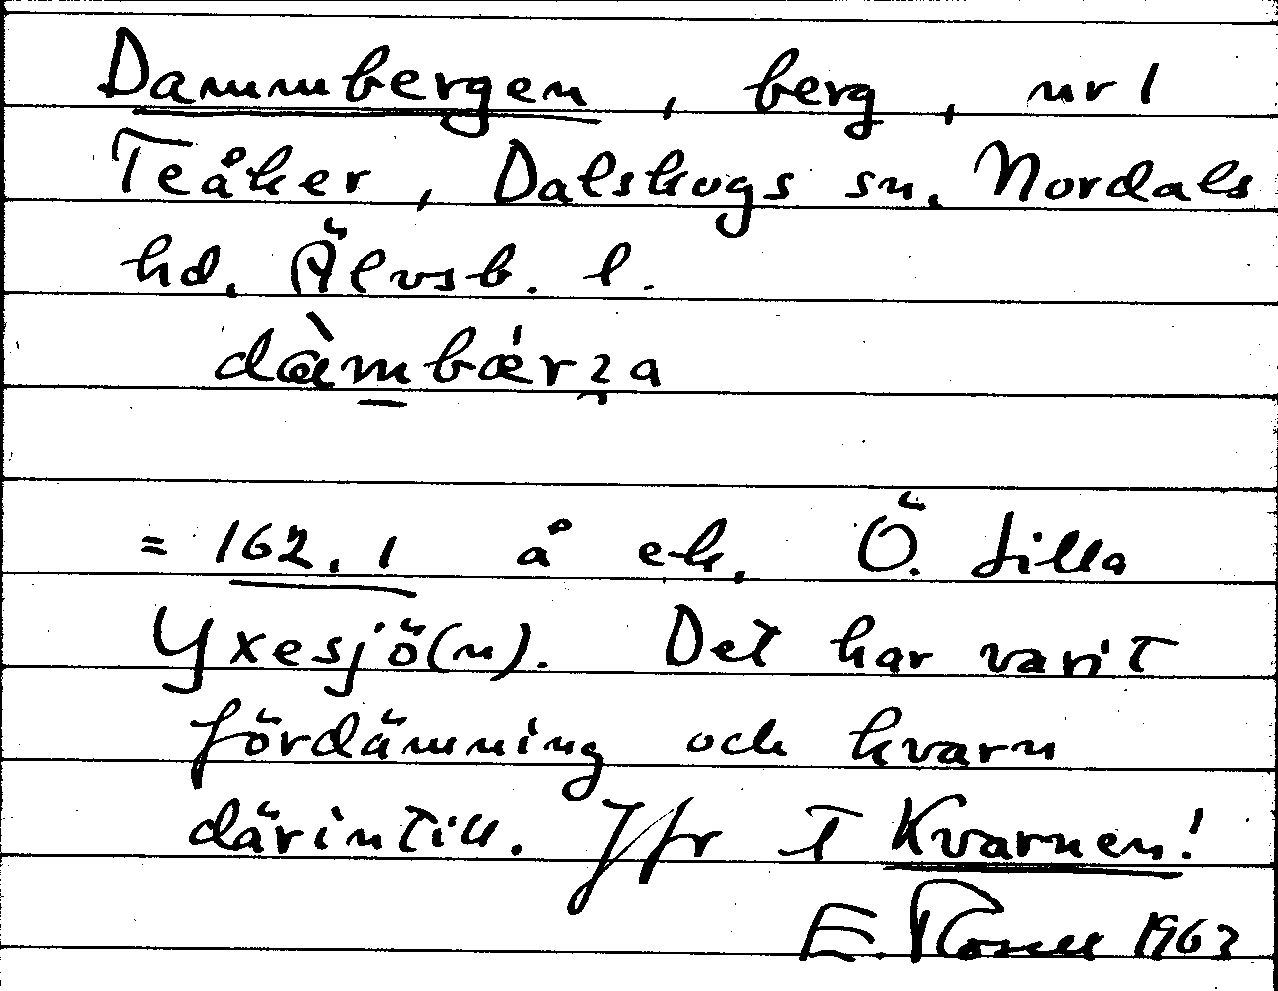 Dammbergen, berg, nr 1
Teåker, Dalskogs sn. Nordals
hd. Älvsb. l.
dàmbǽrʒa
= 162.1 å ek. Ö. Lilla
Yxesjö(n). Det har varit
fördämning och kvarn
därintill. Jfr T Kvarnen!
E. 1963